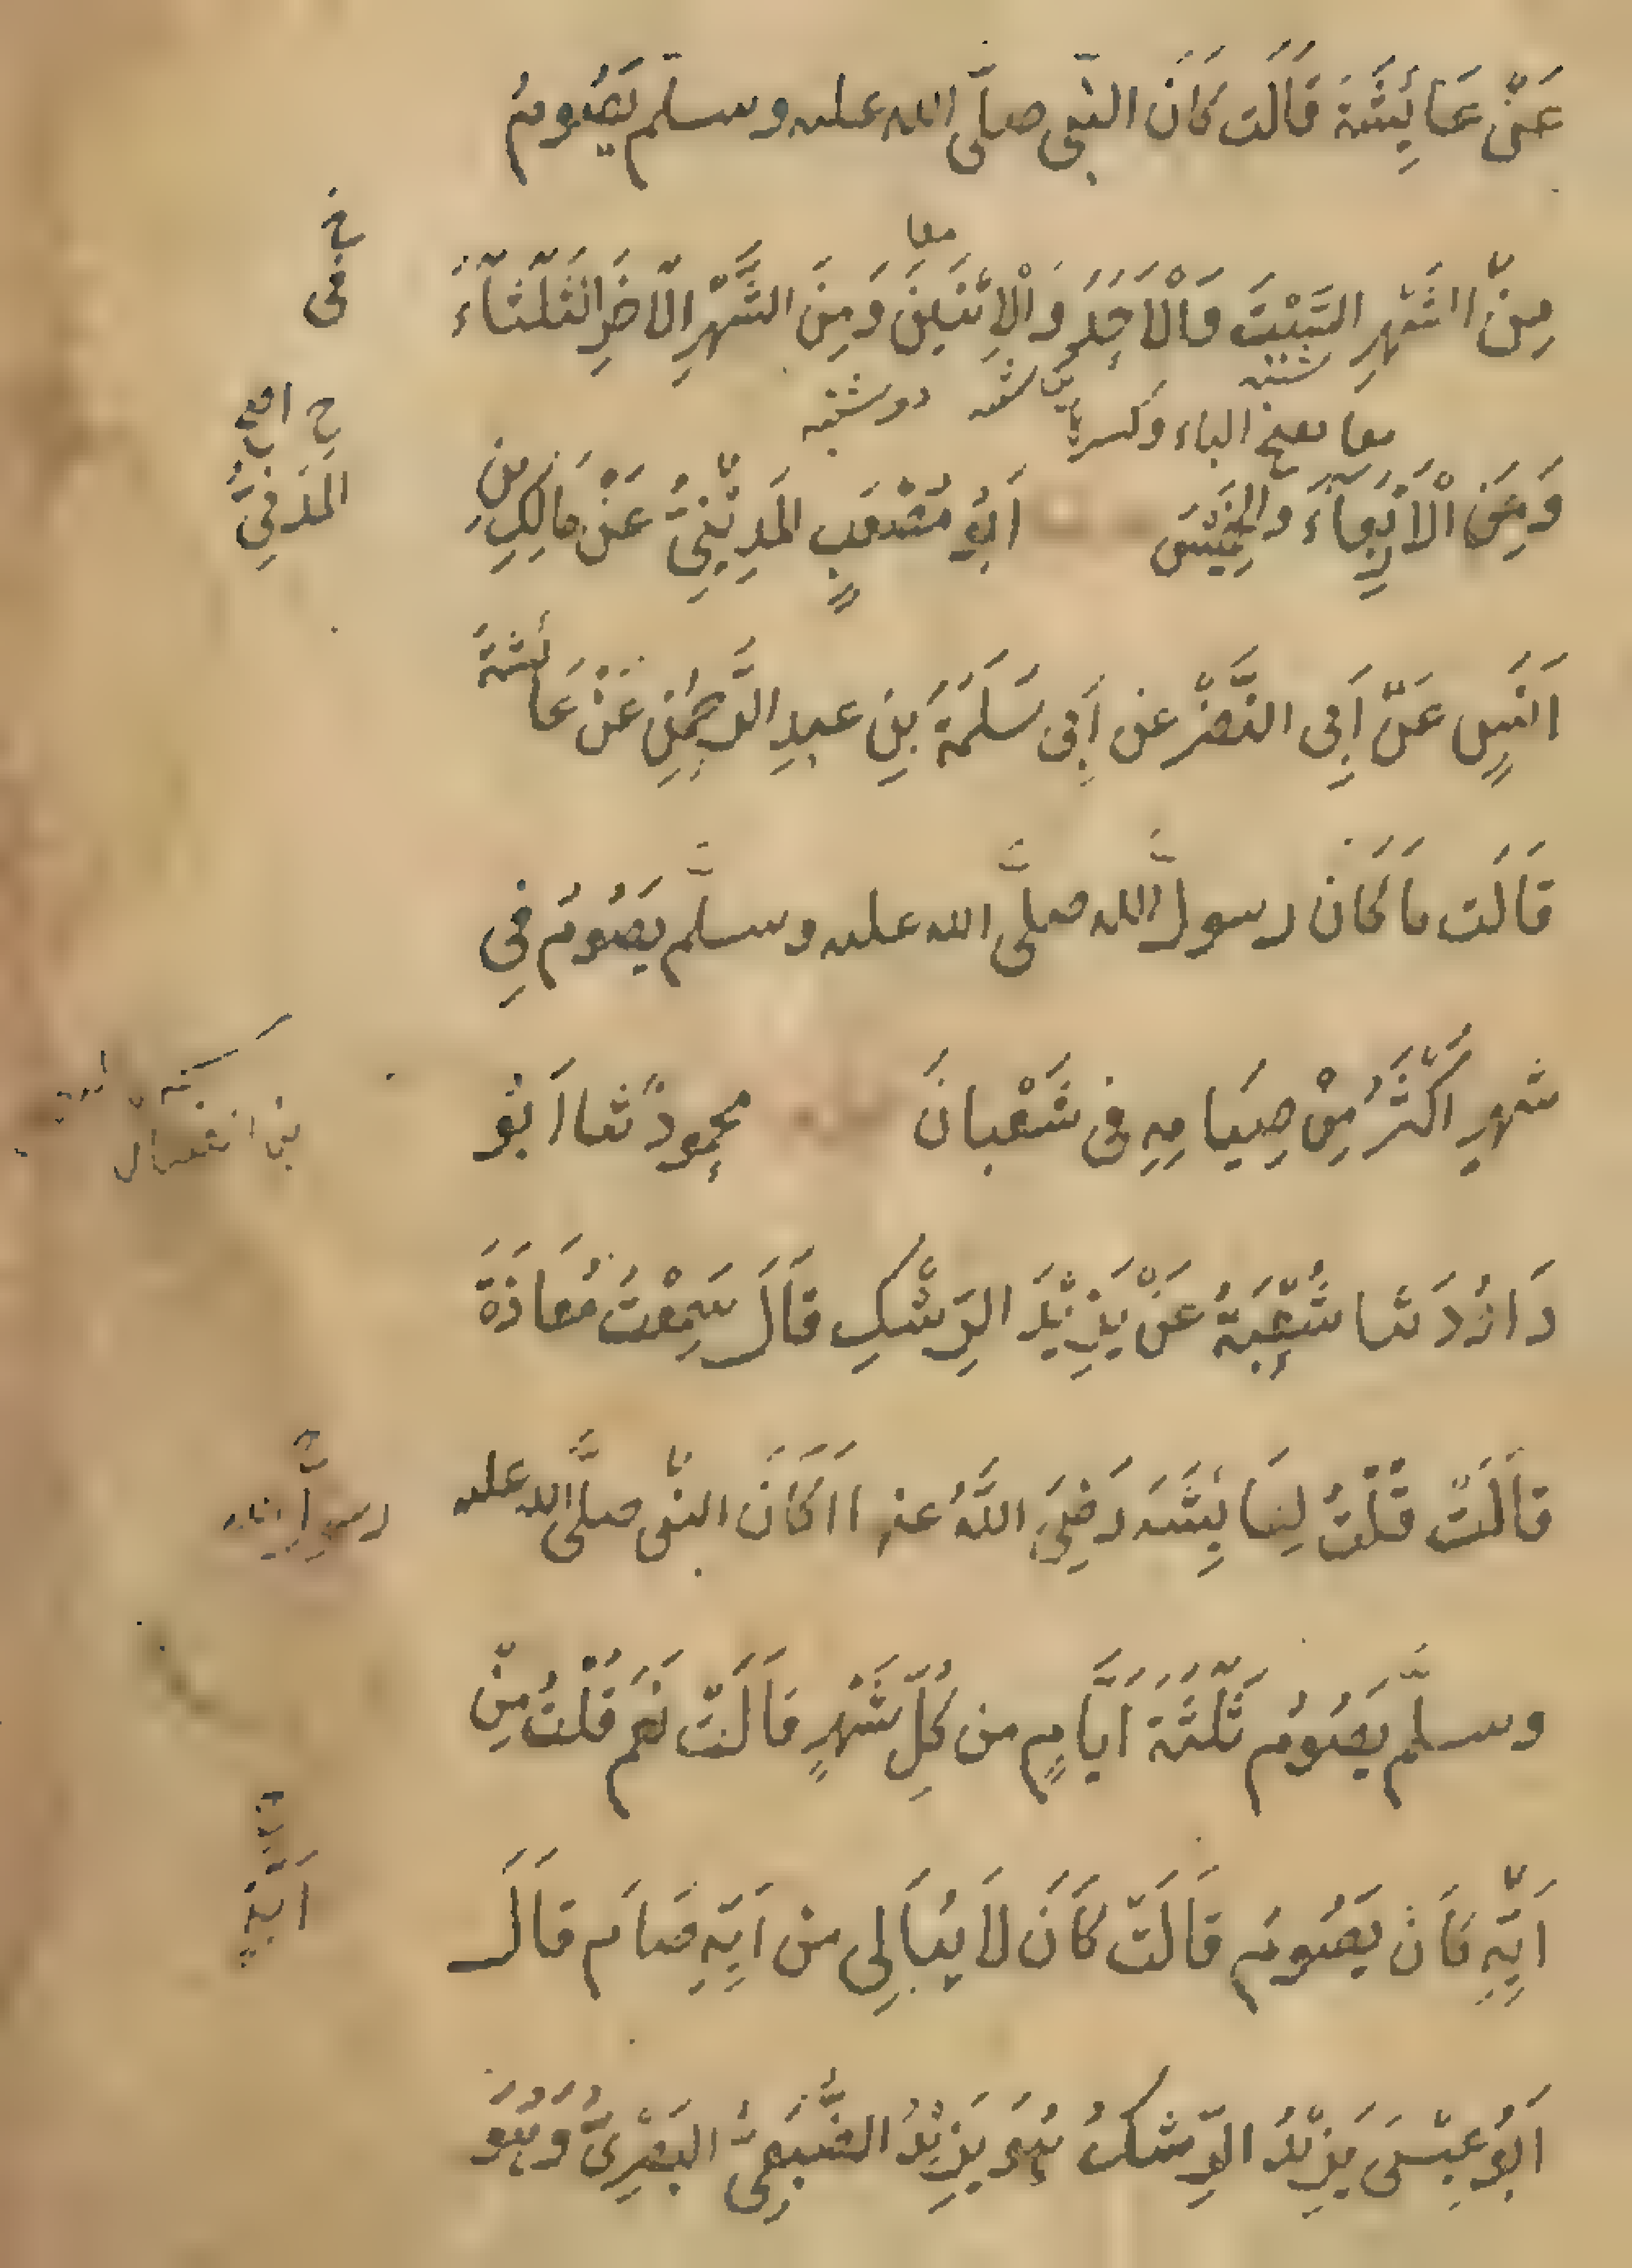 عَنْ عَائِشَةَ قَالَت كَانَ النبى صلّى الله عليه وسلّم يَصُومُ
مِنْ الشَهْرِ السَّبْتَ وَالْاَحَدَ وَالْاِثْنَيْنَ وَمِنَ الشَّهْرِ الْاخَرِ الثَّلَثَاءَ
معا
خ فى
شنبه
دوشنبه
معا بفتح الباء وكسرها
وَمِنَ الْاَرْبِعَاءَ وَالخَمِيْسَ اَبُو مُصْعَبٍ المَدِيْنِىُّ عَنْ مَالِكِ بْنِ
المَدَنِىُّ
اَنَسٍ عَنْ اَبِى النَّضْرِ عن اَبِى سَلَمَةَ بنِ عبدِ الرَّحْمٰنِ عَنْ عَائشةَ
قَالَت مَا كَانَ رسولُ الله صلّى الله عليه وسلّم يَصُومُ فِى
شهرٍ اَكْثَرَ مِنْ صِيَامِهِ فى شَعْبَانَ محمودٌ ثنا اَبُو
دَاوُدَ ثنا شُعْبَةُ عَنْ يَزِيْدَ الرِّشْكِ قَالَ سَمِعْتُ مُعَاذَةَ
قَالَتْ قُلْتُ لِعَائِشَةَ رَضِىَ اللَّهُ عنها اَكَانَ النبى صلّى الله عليه
رسول الله
وسلّم يَصُومُ ثَلثَةَ اَيَّامٍ من كُلِّ شَهْرٍ قَالَتْ نَعَم قُلْتُ مِنْ
اَيِّهِ كَانَ يَصُومُ قَالَتْ كَانَ لَا يُبَالِى منْ اَيِّهِ صَامَ قَالَ
اَبُو عِيْسَى يَزِيْدُ الرِّشْكُ هُوَ يَزِيْدُ الضُّبَعِىُّ البَصْرِىُّ وَهُوَ